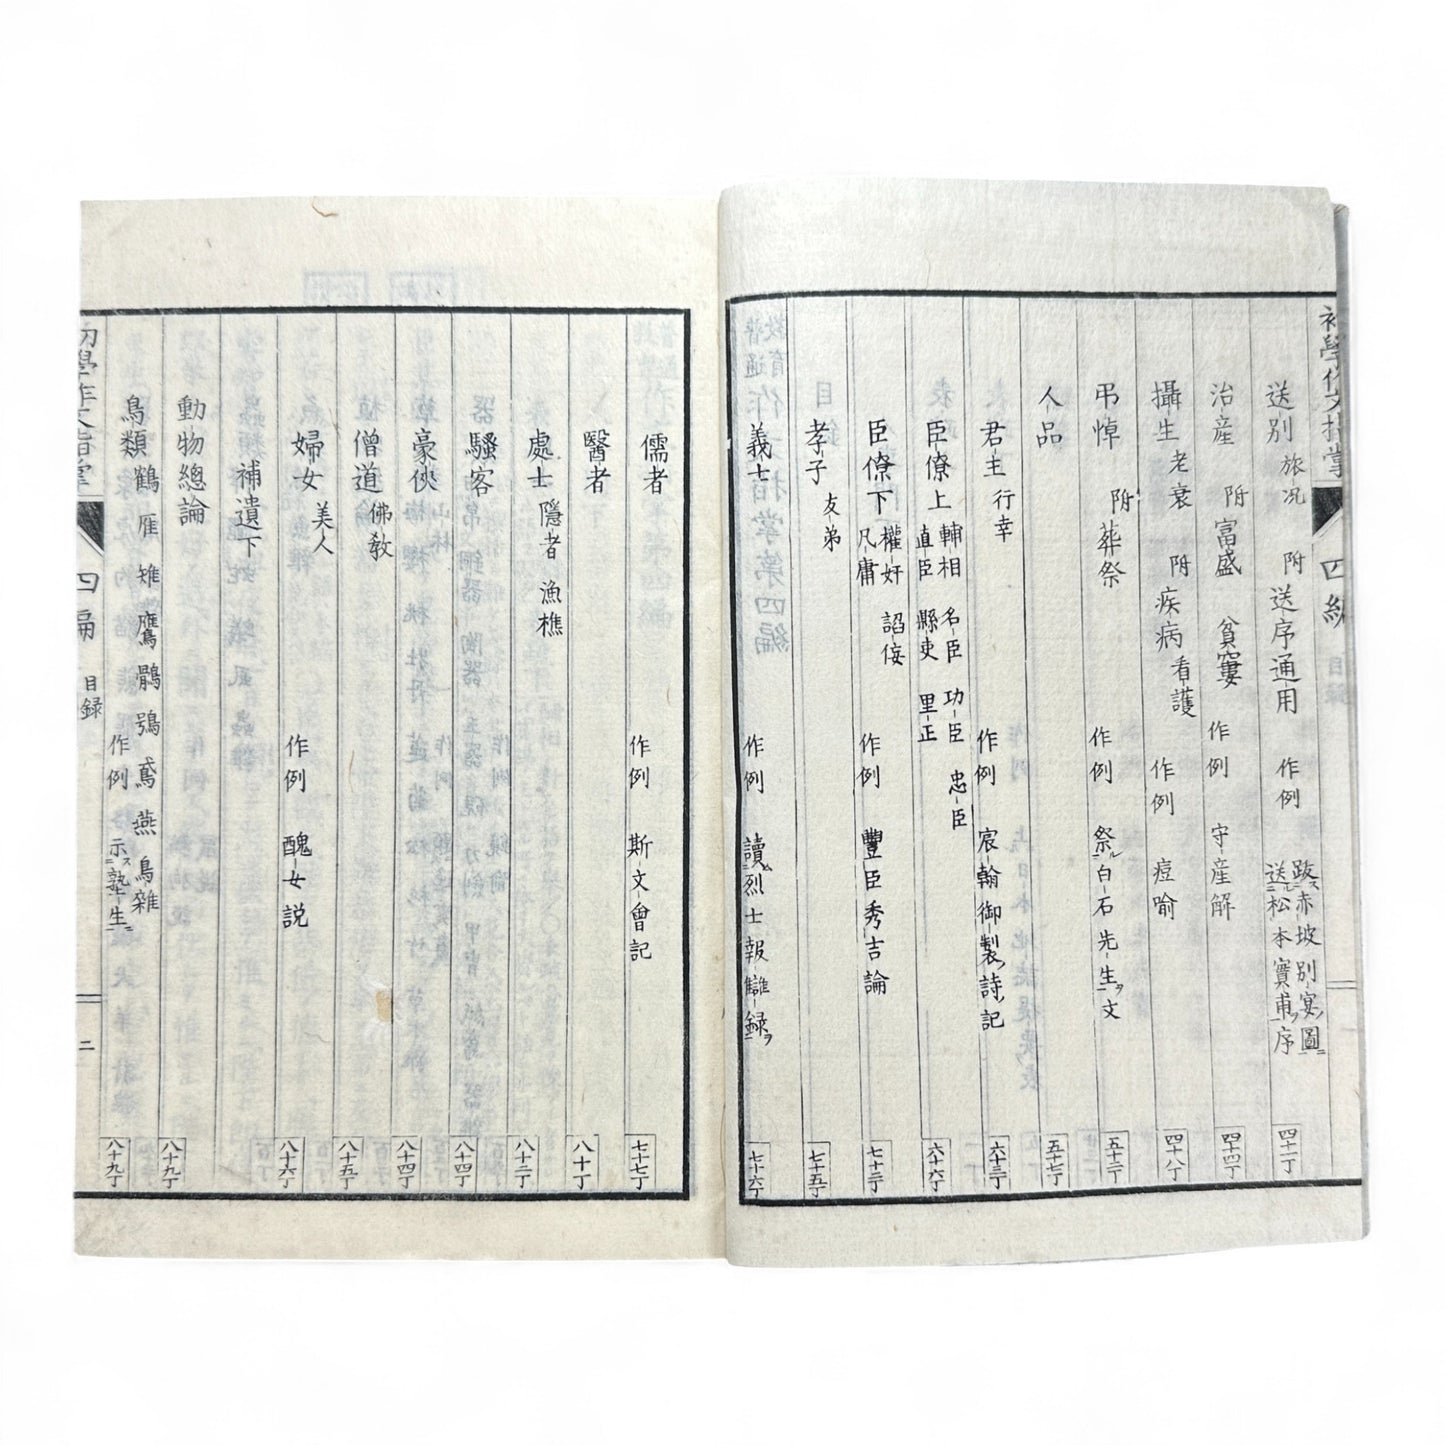 初學作文指掌 四編
送別 旅况 附送序通用 作例 跋赤坡別宴圖 送松本寶甫序 四十一丁
治産 附富盛 貧窶 作例 守産解 四十四丁
攝生 老衰 附疾病 看護 作例 痘喻 四十八丁
弔悼 附葬祭 作例 祭白石先生文 五十三丁
人品 五十七丁
君主 行幸 作例 宸翰御製詩記 六十三丁
臣僚上 輔相 名臣 功臣 忠臣 直臣 縣吏 里正 六十六丁
臣僚下 權奸 諂佞 凡庸 作例 豐臣秀吉論 七十三丁
孝子 友弟 七十五丁
義士 作例 讀烈士報讎録 七十六丁
儒者 作例 斯文會記 七十七丁
醫者 八十丁
處士 隱者 漁樵 八十二丁
騷客 八十四丁
豪俠 八十四丁
僧道 佛教 八十五丁
婦女 美人 作例 醜女説 八十六丁
補遺下
動物總論 八十九丁
鳥類 鶴 雁 雉 鷹 鶻 鴞 鳶 燕 鳥雜 作例 示塾生 八十九丁
初學作文指掌 四編 目録 二